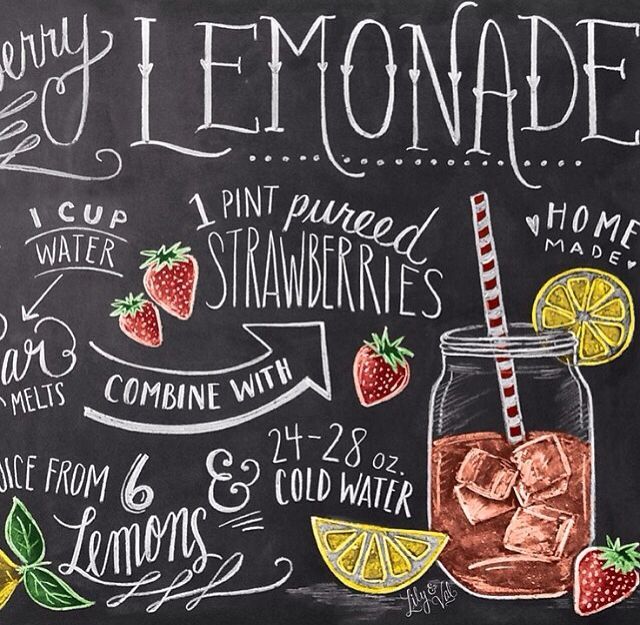 erry LEMONADE
1 CUP
WATER
1 PINT pureed
STRAWBERRIES
HOME
MADE
ar
MELTS
COMBINE WITH
UICE FROM 6
Lemons
&
24-28 oz.
COLD WATER
Lily & Val